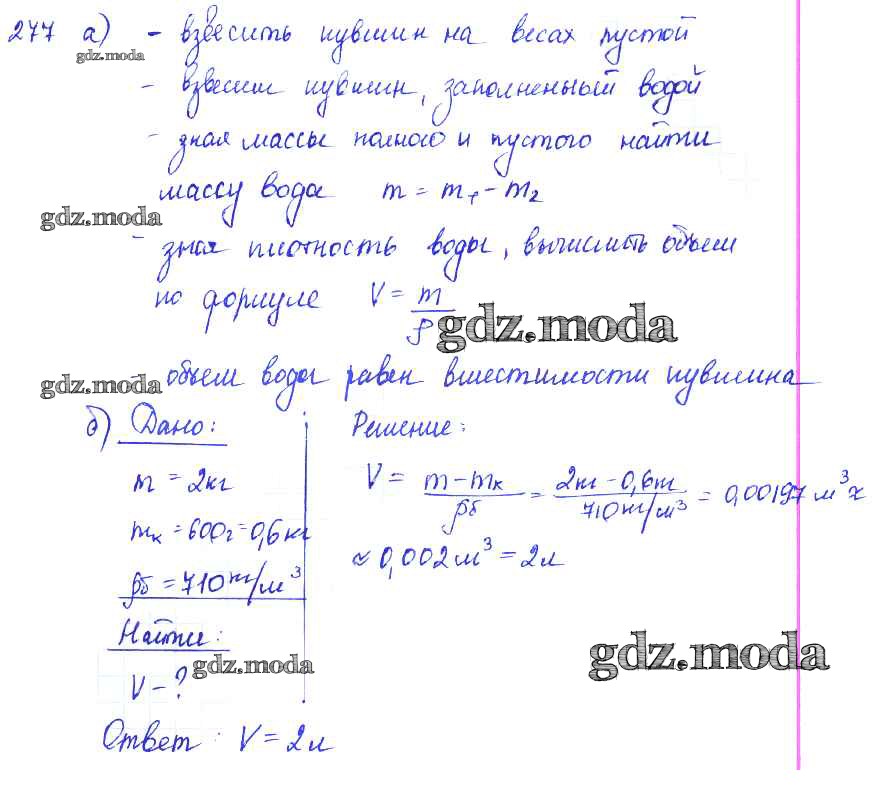 277 а) - взвесить кувшин на весах пустой
gdz.moda
- взвесим кувшин, заполненный водой
- зная массы полного и пустого найти
массу воды m = m₁ - m₂
gdz.moda
- зная плотность воды, вычислить объем
по формуле V = m/ρ
gdz.moda
gdz.moda
- объем воды равен вместимости кувшина
б) Дано:
m = 2кг
mк = 600г = 0,6кг
ρб = 710 кг/м³
Найти:
V - ?
gdz.moda
Решение:
V = (m - mк)/ρб = (2кг - 0,6кг)/(710 кг/м³) = 0,00197 м³ ≈
≈ 0,002 м³ = 2л
gdz.moda
Ответ: V = 2л